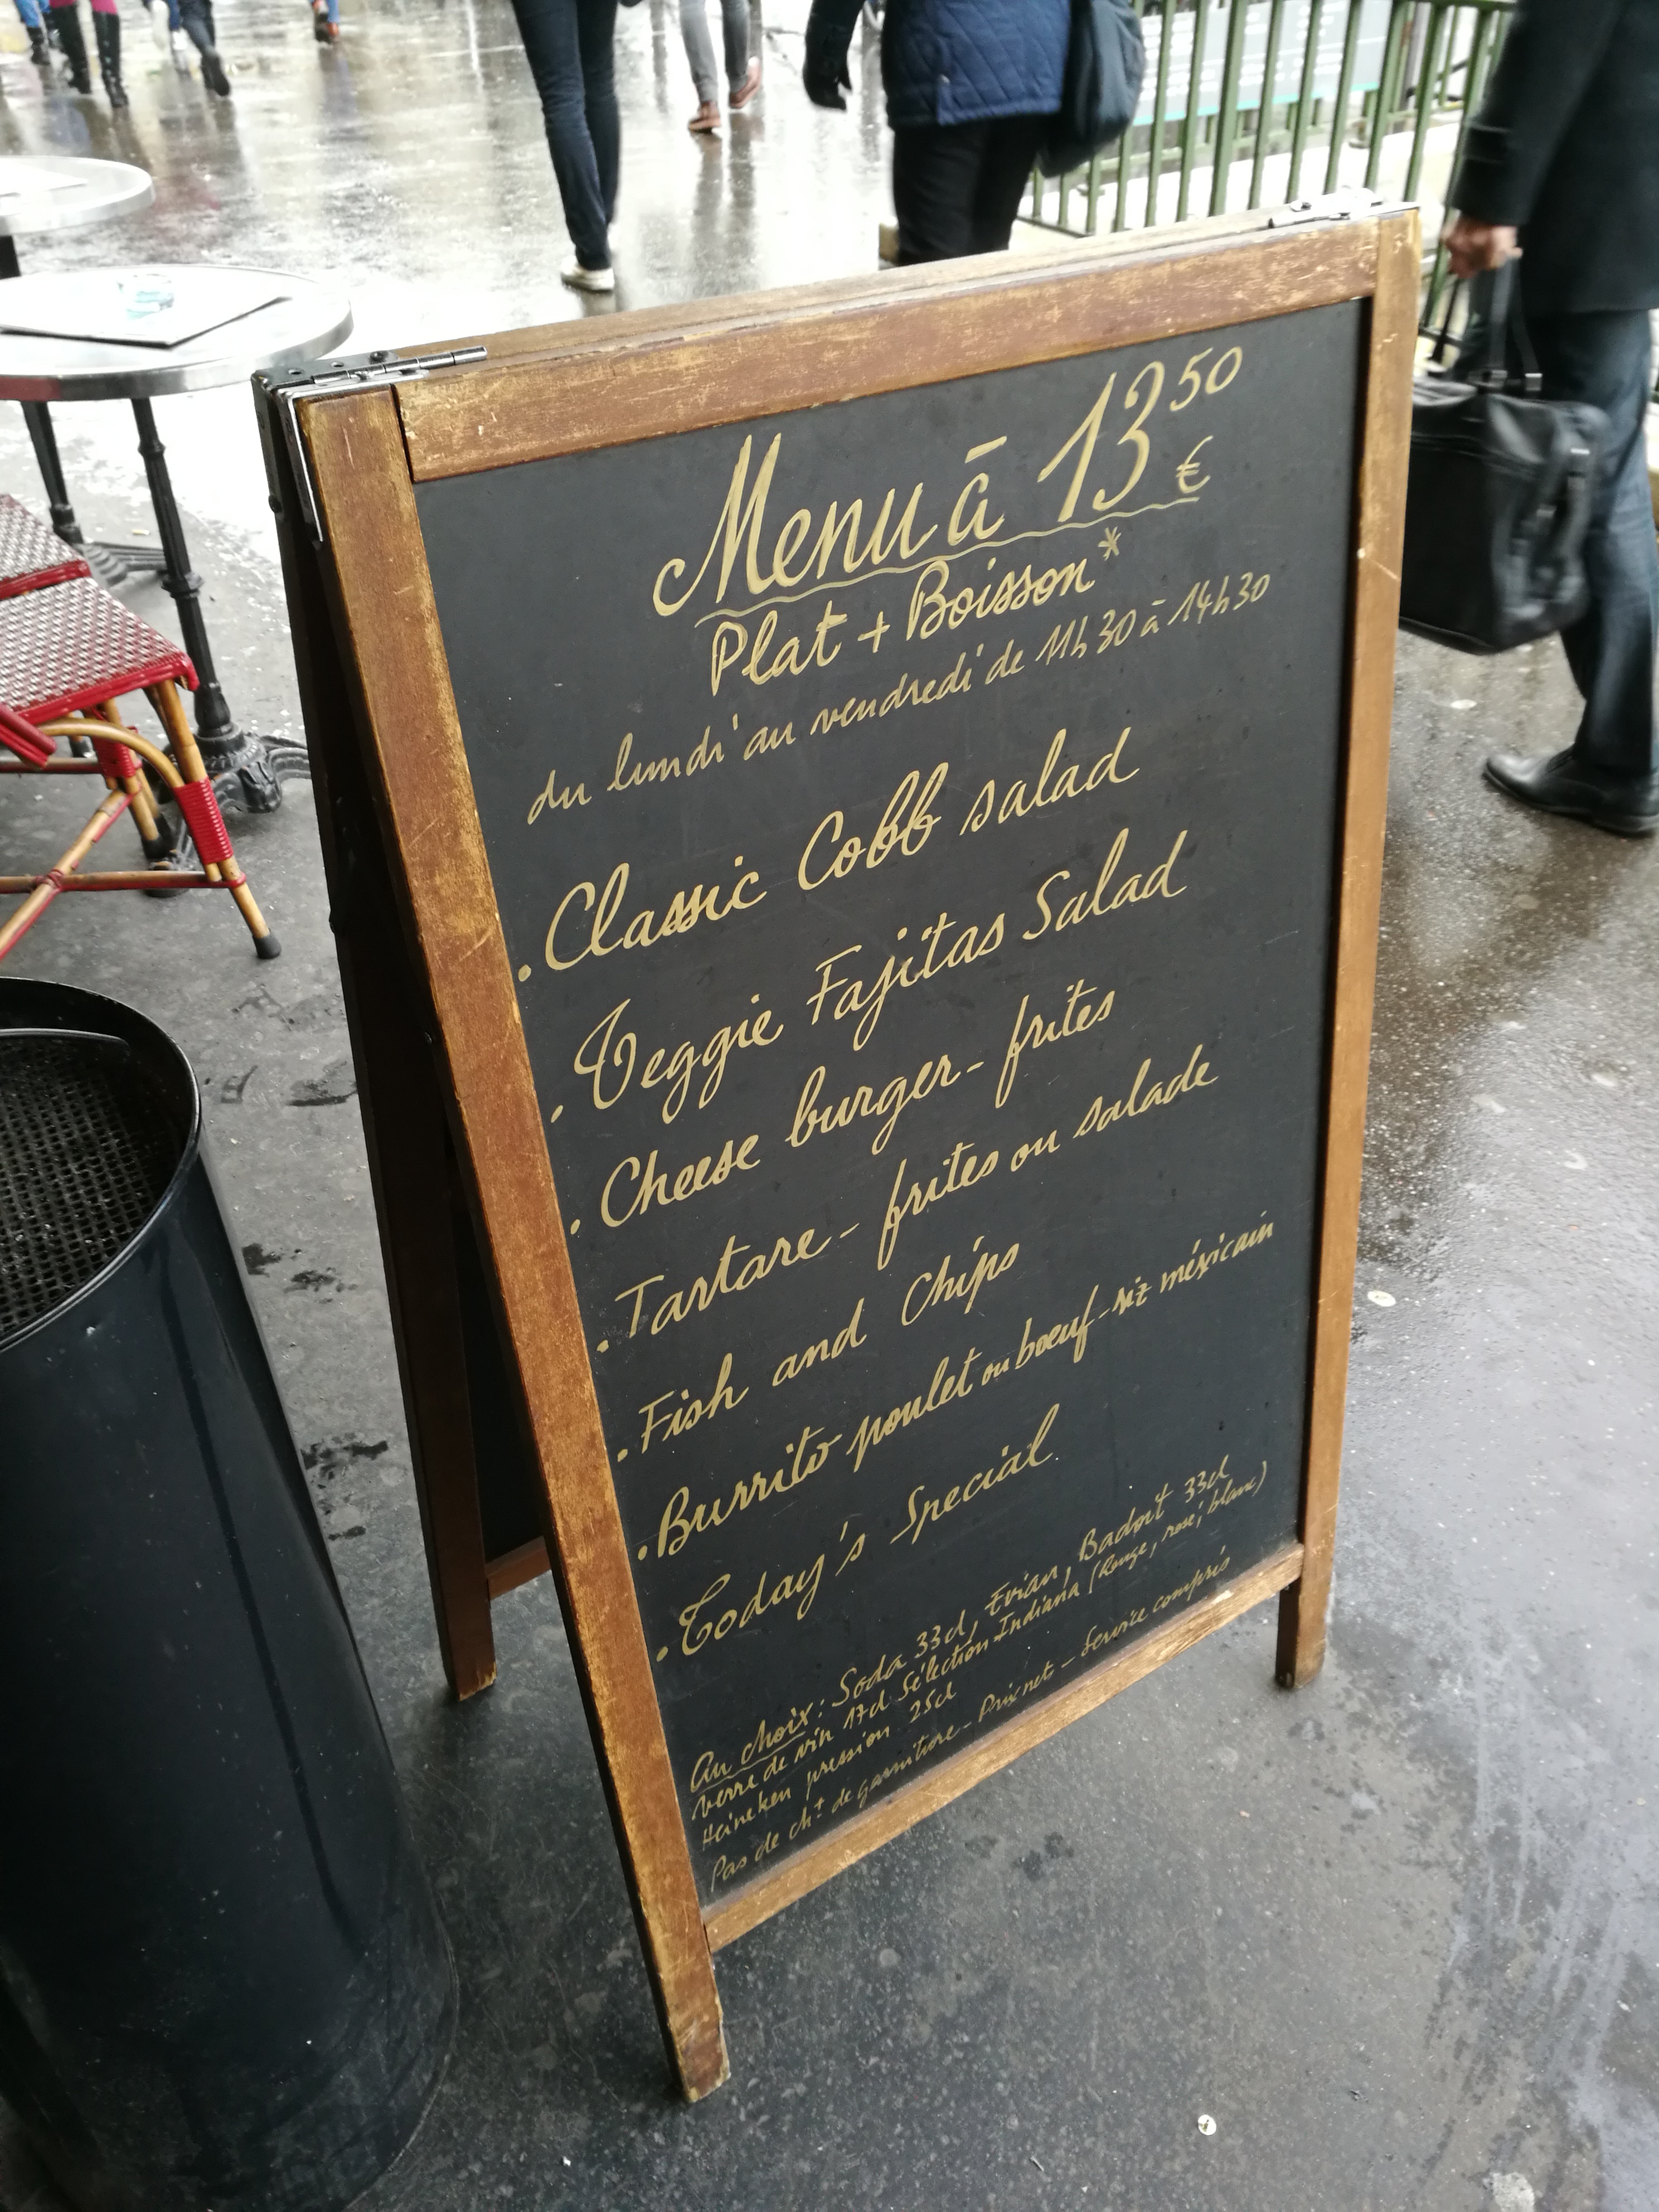 Menu à 13 50 €
Plat + Boisson*
du lundi au vendredi de 11h30 à 14h30
. Classic Cobb salad
. Veggie Fajitas Salad
. Cheese burger - frites
. Tartare - frites ou salade
. Fish and Chips
. Burrito poulet ou boeuf - riz méxicain
. Today's Special
Au choix : Soda 33cl, Evian, Badoit 33cl
verre de vin 17cl Sélection Indiana (Rouge, rosé, blanc)
Heineken pression 25cl
Pas de cht de garniture - Prix net - Service compris